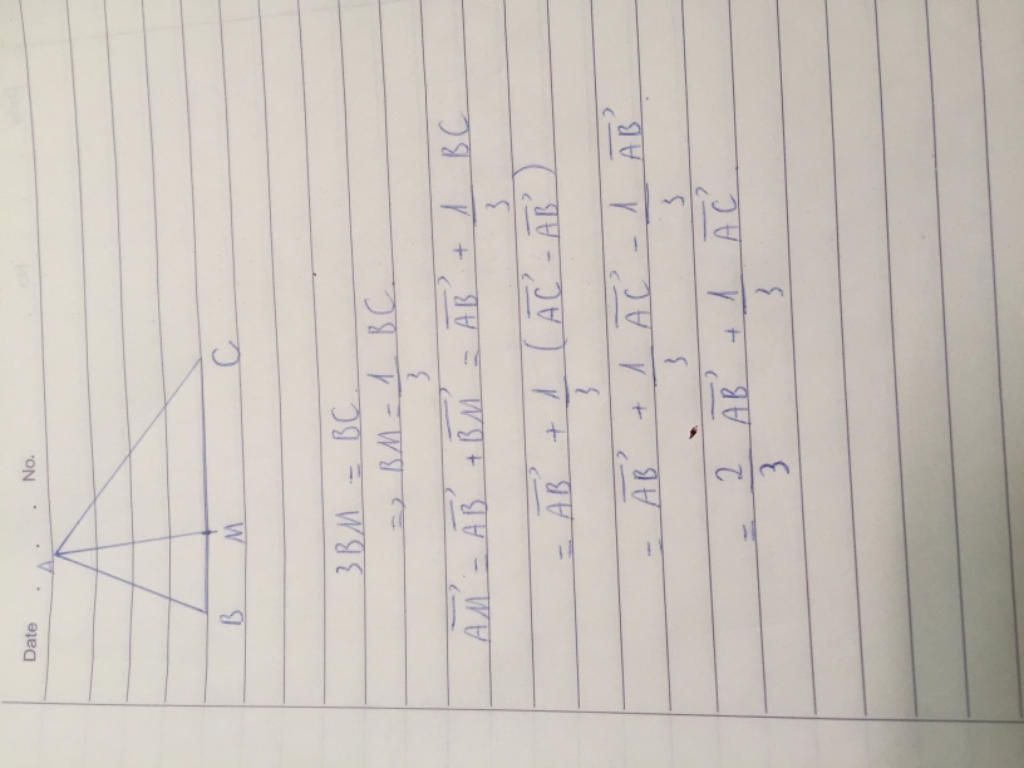 Date . . . No.
A
B M C
3BM = BC
=> BM = 1/3 BC
\overrightarrow{AM} = \overrightarrow{AB} + \overrightarrow{BM} = \overrightarrow{AB} + 1/3 BC
= \overrightarrow{AB} + 1/3 (\overrightarrow{AC} - \overrightarrow{AB})
= \overrightarrow{AB} + 1/3 \overrightarrow{AC} - 1/3 \overrightarrow{AB}
= 2/3 \overrightarrow{AB} + 1/3 \overrightarrow{AC}